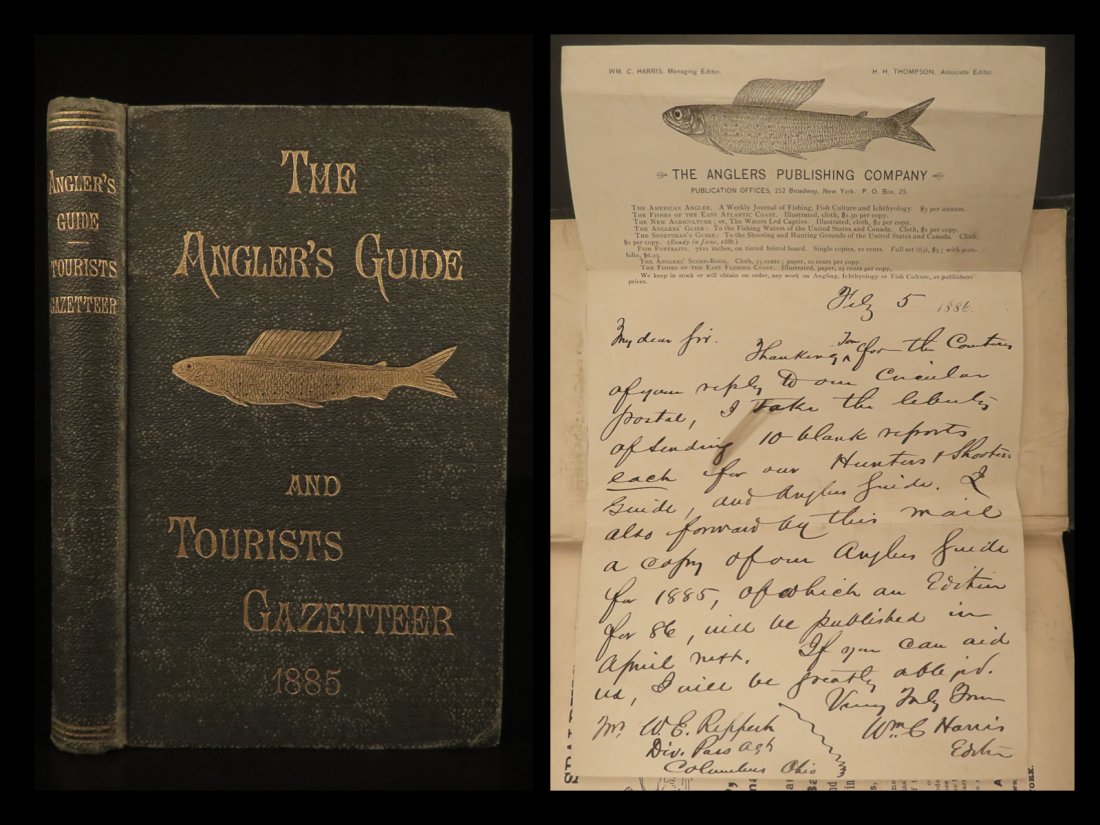 ANGLER'S
GUIDE
TOURISTS
GAZETTEER
THE
ANGLER'S GUIDE
AND
TOURISTS
GAZETTEER
1885
WM. C. HARRIS, Managing Editor.
H. H. THOMPSON, Associate Editor.
THE ANGLERS PUBLISHING COMPANY
PUBLICATION OFFICES, 252 Broadway, New York. P. O. Box, 25.
THE AMERICAN ANGLER. A Weekly Journal of Fishing, Fish Culture and Ichthyology. $3 per annum.
THE FISHES OF THE EAST ATLANTIC COAST. Illustrated, cloth, $1.50 per copy.
THE NEW AGRICULTURE; or, The Waters Led Captive. Illustrated, cloth, $2 per copy.
THE ANGLERS' GUIDE: To the Fishing Waters of the United States and Canada. Cloth, $1 per copy.
THE SPORTSMAN'S GUIDE: To the Shooting and Hunting Grounds of the United States and Canada. Cloth,
$1 per copy. (Ready in June, 1886.)
FISH PORTRAITS, inches, on tinted bristol board. Single copies, 10 cents. Full set (63), $5; with port-
folio, $6.25.
THE ANGLERS' SCORE-BOOK. Cloth, 25 cents; paper, 10 cents per copy.
THE FISHES OF THE EAST FLORIDA COAST. Illustrated, paper, 25 cents per copy.
We keep in stock or will obtain on order, any work on Angling, Ichthyology or Fish Culture, at publishers'
prices.
Feby 5 1886.
My dear Sir. Thanking you for the Courtesy
of your reply to our Circular
postal, I take the liberty
of sending 10 blank reports
each for our Hunters & Shooters
Guide, and Anglers Guide. I
also forward by this mail
a copy of our Anglers Guide
for 1885, of which an Edition
for 86, will be published in
April next. If you can aid
us, I will be greatly obliged.
Very Truly Yours
Mr W. C. Harris
Editor
Mr. W. E. Reppert
Div. Pass Agt
Columbus Ohio